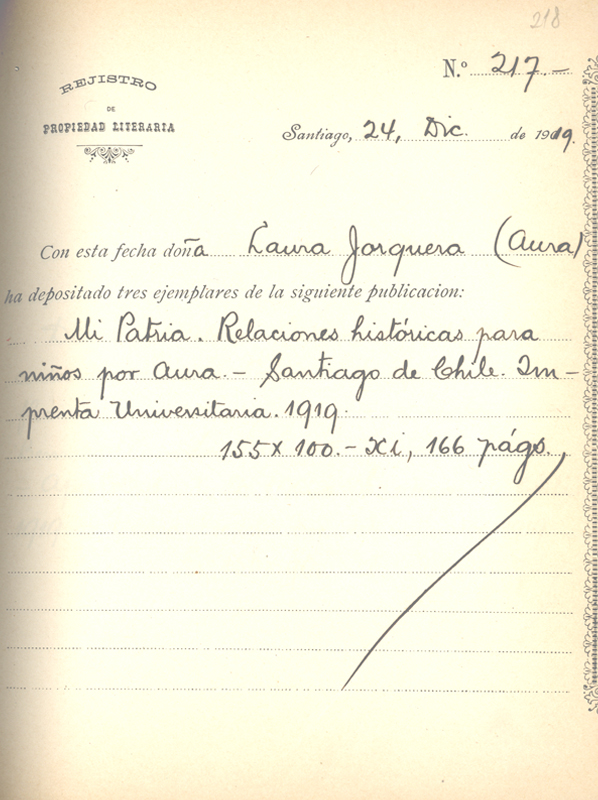 218
N.º 217.-
REJISTRO
DE
PROPIEDAD LITERARIA
Santiago, 24, Dic. de 1919.
Con esta fecha doña Laura Jorquera (Aura)
ha depositado tres ejemplares de la siguiente publicacion:
Mi Patria. Relaciones históricas para
niños por Aura. - Santiago de Chile. Im-
prenta Universitaria. 1919.
155 x 100. - xi, 166 págs.